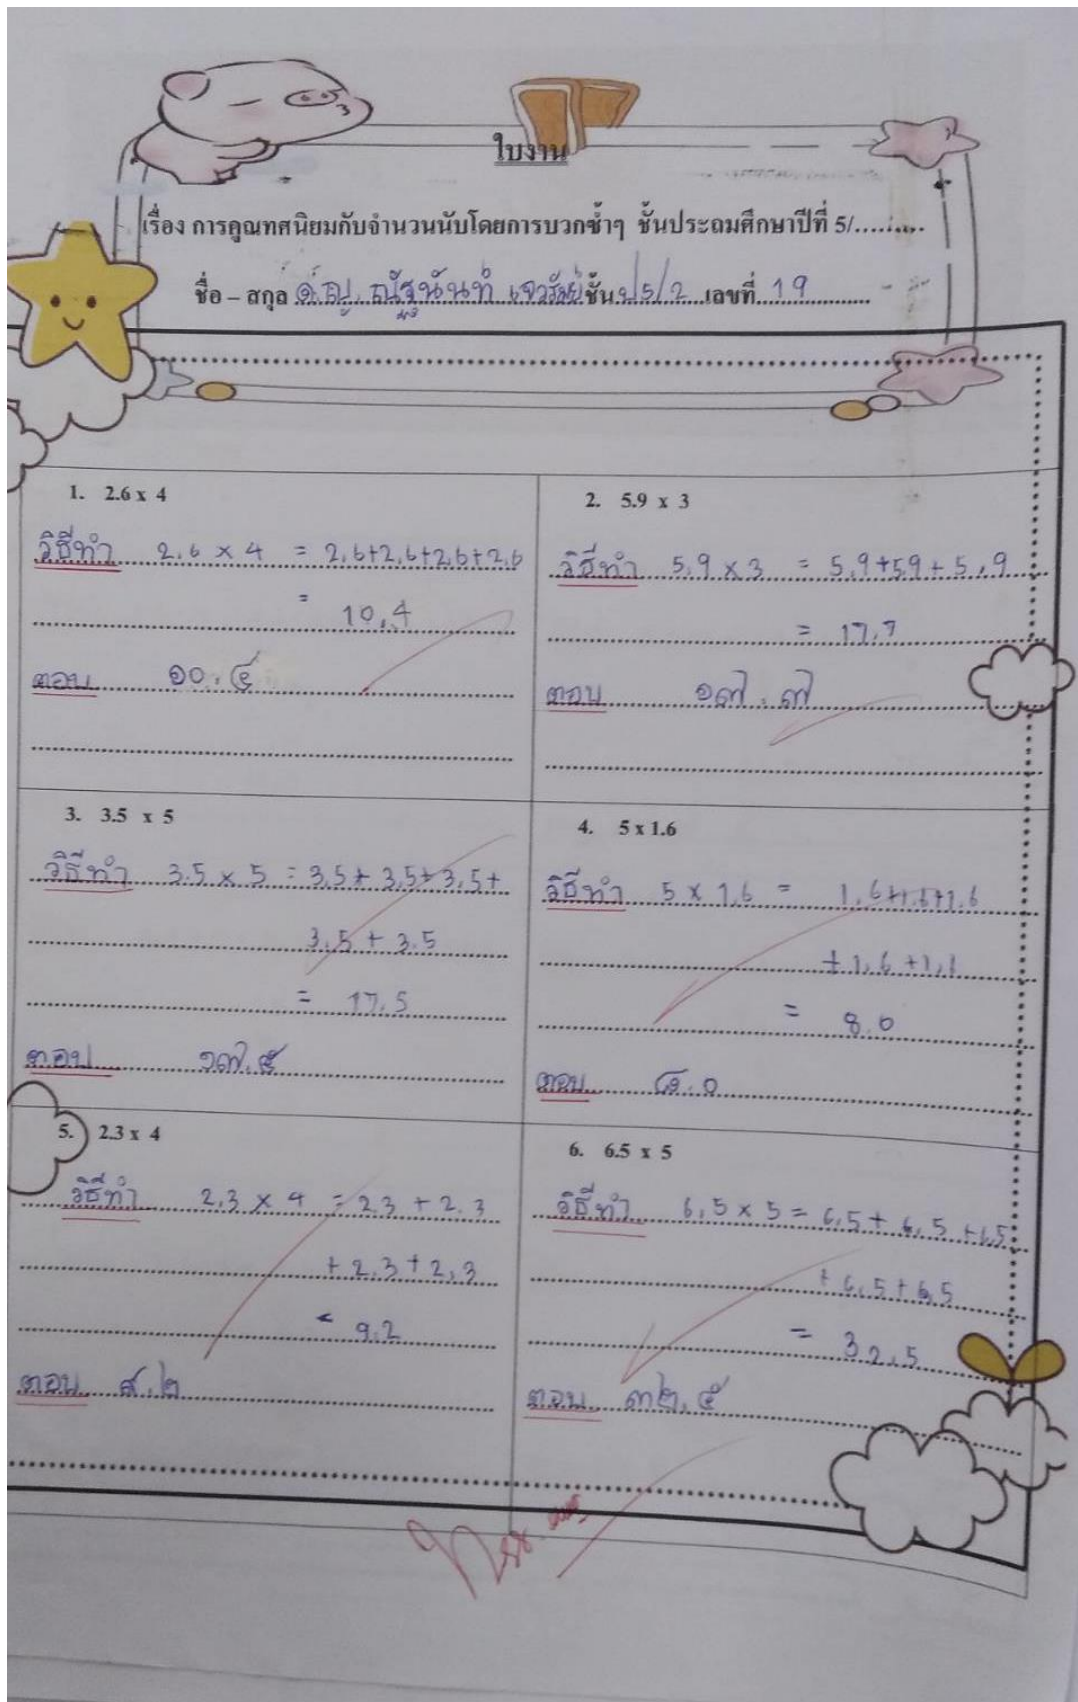 ใบงาน
เรื่อง การคูณทศนิยมกับจำนวนนับโดยการบวกซ้ำๆ ชั้นประถมศึกษาปีที่ 5/.........
ชื่อ – สกุล ด.ญ. ณัฐนันท์ ชั้น ป.5/2 เลขที่ 19
1. 2.6 x 4
วิธีทำ 2.6 × 4 = 2.6+2.6+2.6+2.6
= 10.4
ตอบ ๑๐.๔
2. 5.9 x 3
วิธีทำ 5.9 × 3 = 5.9+5.9+5.9
= 17.7
ตอบ ๑๗.๗
3. 3.5 x 5
วิธีทำ 3.5 × 5 = 3.5+3.5+3.5+
3.5 + 3.5
= 17.5
ตอบ ๑๗.๕
4. 5 x 1.6
วิธีทำ 5 × 1.6 = 1.6+1.6+1.6
+1.6 +1.6
= 8.0
ตอบ ๘.๐
5. 2.3 x 4
วิธีทำ 2.3 × 4 = 2.3 + 2.3
+ 2.3 + 2.3
= 9.2
ตอบ ๙.๒
6. 6.5 x 5
วิธีทำ 6.5 × 5 = 6.5 + 6.5 + 6.5
+ 6.5 + 6.5
= 32.5
ตอบ ๓๒.๕